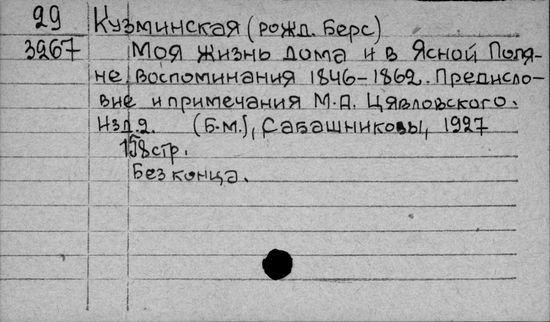 29 Кузминская (рожд. Берс)
3267 Моя жизнь дома и в Ясной Поля-
не. Воспоминания 1846-1862. Предисло-
вие и примечания М.А. Цявловского.
Изд. 2. (Б.М.), Сабашниковы, 1927
158 стр.
Без конца.